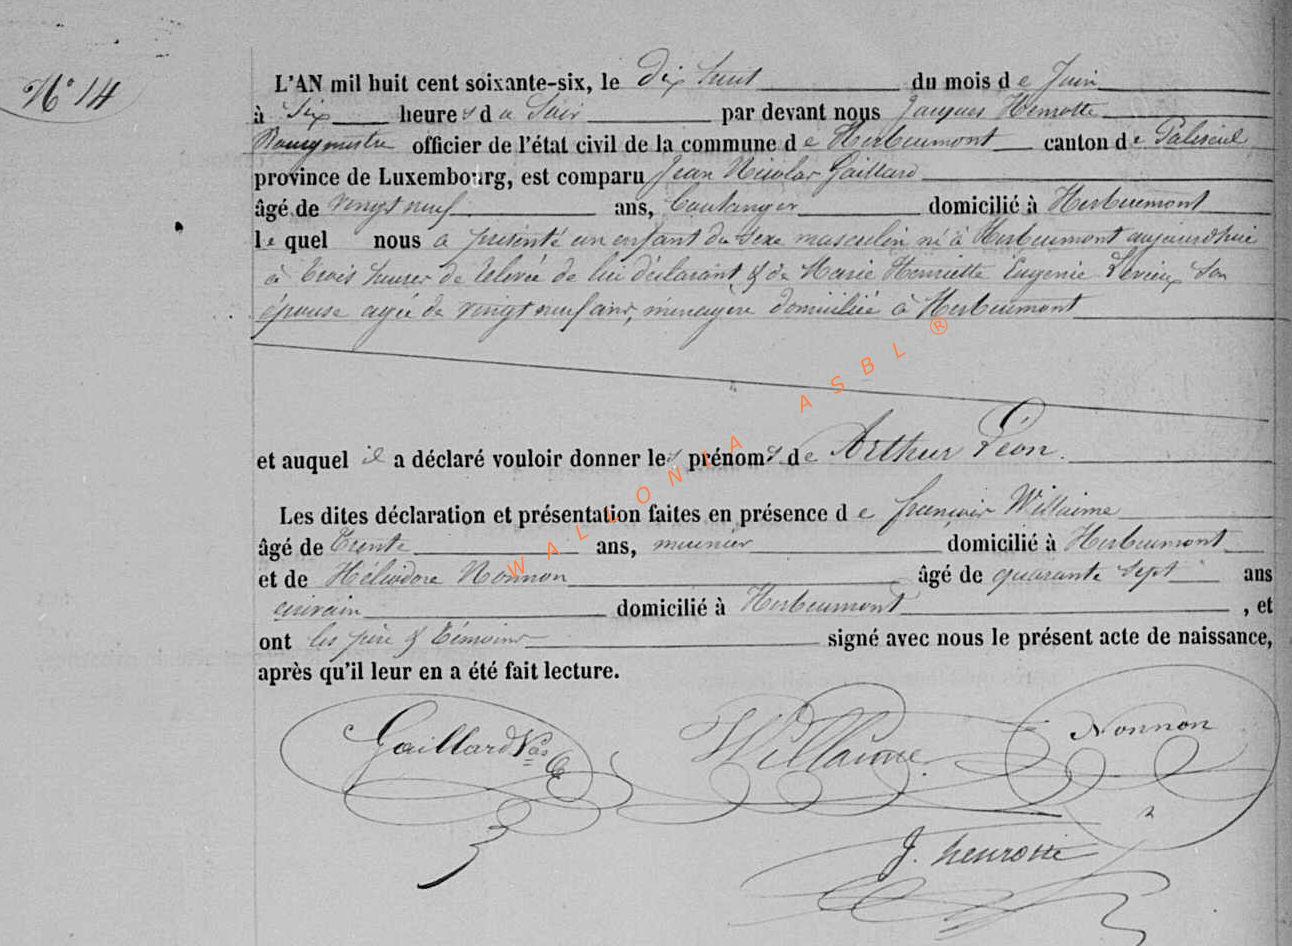 N° 14
L'AN mil huit cent soixante-six, le Dix huit du mois de Juin
à Six heures du Soir par devant nous Jacques Henrotte
Bourgmestre officier de l'état civil de la commune de Herbeumont canton de Paliseul
province de Luxembourg, est comparu Jean Nicolas Gaillard
âgé de vingt neuf ans, boulanger domicilié à Herbeumont
le quel nous a présenté un enfant du sexe masculin né à Herbeumont aujourd'hui
à trois heures de relevée de lui déclarant & de Marie Henriette Eugenie son
épouse agée de vingt neuf ans, ménagère domiciliée à Herbeumont
et auquel il a déclaré vouloir donner les prénoms de Arthur Léon.
Les dites déclaration et présentation faites en présence de françois Willaime
âgé de trente ans, meunier domicilié à Herbeumont
et de Héliodore Nonnon âgé de quarante sept ans
écrivain domicilié à Herbeumont, et
ont les père & témoins signé avec nous le présent acte de naissance,
après qu'il leur en a été fait lecture.
Gaillard Nas Willaime Nonnon
J. henrotte
WALLONIA ASBL ®